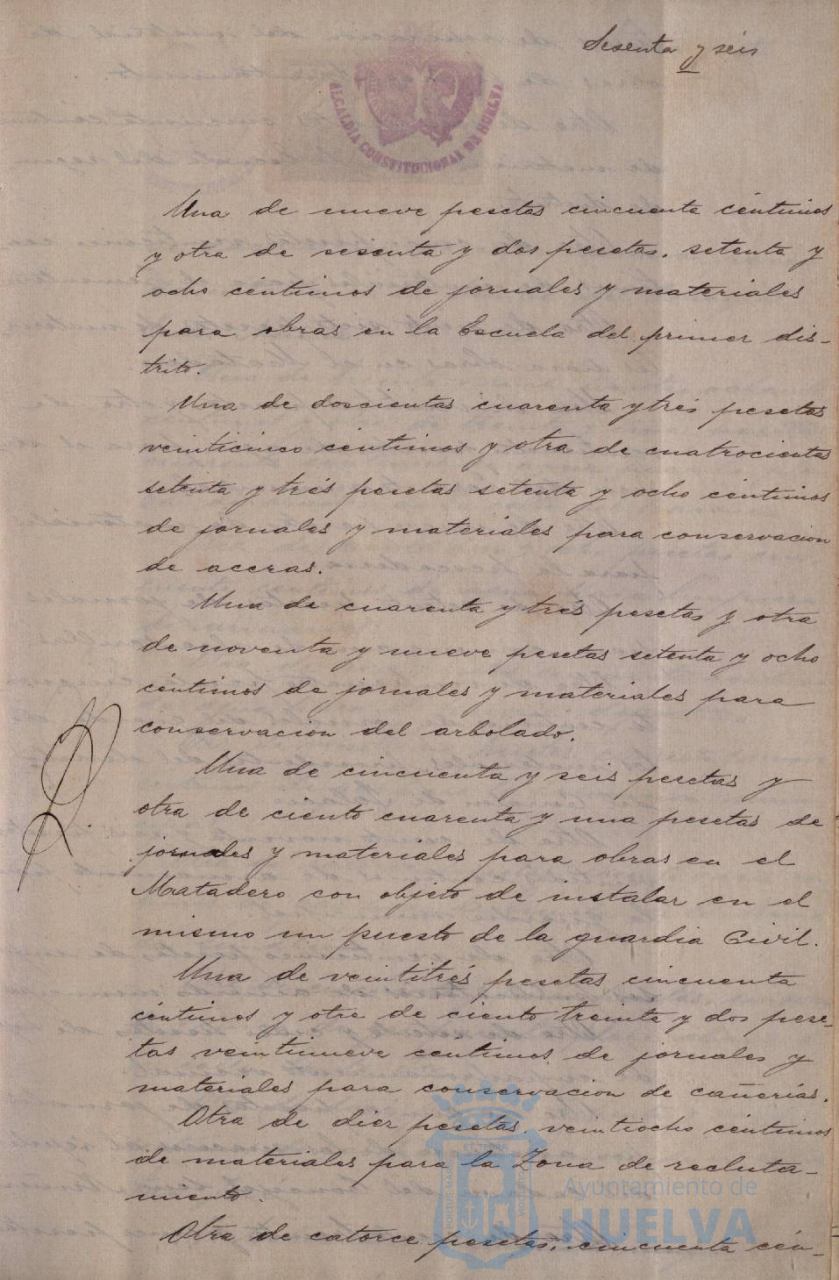 Sesenta y seis
ALCALDIA CONSTITUCIONAL DE HUELVA
Una de nueve pesetas cincuenta céntimos
y otra de sesenta y dos pesetas, setenta y
ocho céntimos de jornales y materiales
para obras en la Escuela del primer dis-
trito.
Una de doscientas cuarenta y trés pesetas
veinticinco céntimos y otra de cuatrocientas
setenta y trés pesetas setenta y ocho céntimos
de jornales y materiales para conservacion
de aceras.
Una de cuarenta y trés pesetas y otra
de noventa y nueve pesetas setenta y ocho
céntimos de jornales y materiales para
conservacion del arbolado.
Una de cincuenta y seis pesetas y
otra de ciento cuarenta y una pesetas de
jornales y materiales para obras en el
Matadero con objeto de instalar en el
mismo un puesto de la guardia Civil.
Una de veintitrés pesetas cincuenta
céntimos y otra de ciento treinta y dos pese
tas veintinueve centimos de jornales y
materiales para conservacion de cañerías.
Otra de diez pesetas veintiocho céntimos
de materiales para la Zona de recluta-
miento.
Otra de catorce pesetas, cincuenta cén-
Ayuntamiento de
HUELVA